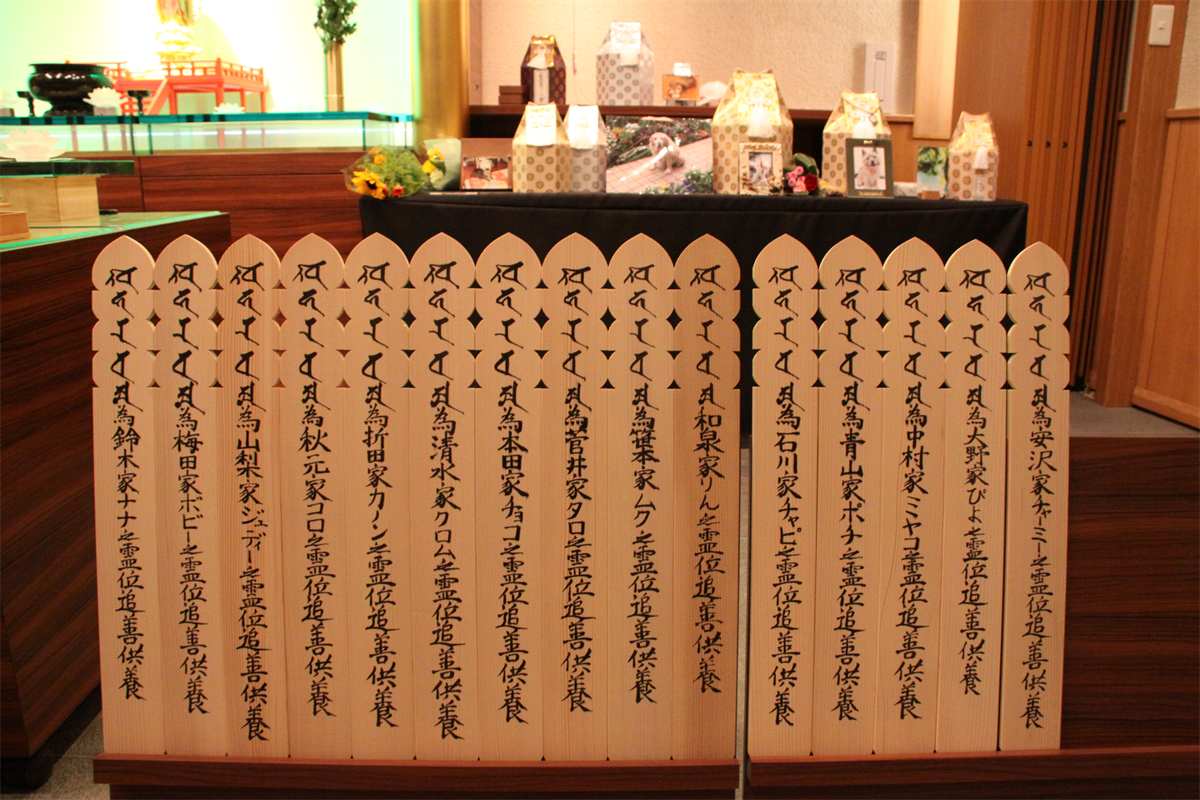 為安沢家チャーミー之霊位追善供養
為大野家ぴよ之霊位追善供養
為中村家ミヤコ之霊位追善供養
為青山家ポチ之霊位追善供養
為石川家チャピ之霊位追善供養
和泉家りん之霊位追善供養
為笹本家ムク之霊位追善供養
為菅井家タロ之霊位追善供養
為本田家チョコ之霊位追善供養
為清水家クロム之霊位追善供養
為折田家カノン之霊位追善供養
為秋元家コロ之霊位追善供養
為山梨家ジュディー之霊位追善供養
為梅田家ボビー之霊位追善供養
為鈴木家ナナ之霊位追善供養